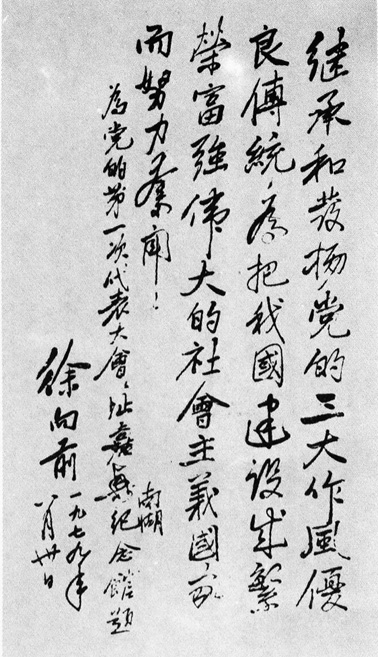 继承和發揚党的三大作風優
良傳統，為把我國建设成繁
榮富強偉大的社會主義國家
而努力奮鬥！
為党的第一次代表大會々址嘉興南湖紀念館題
徐向前 一九七九年
八月卅日